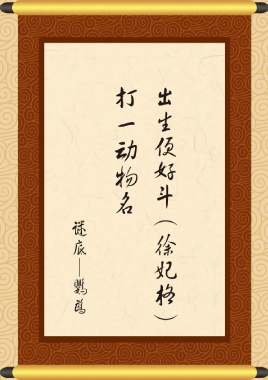 出生便好斗（徐妃格）
打一动物名
谜底——鹦鹉